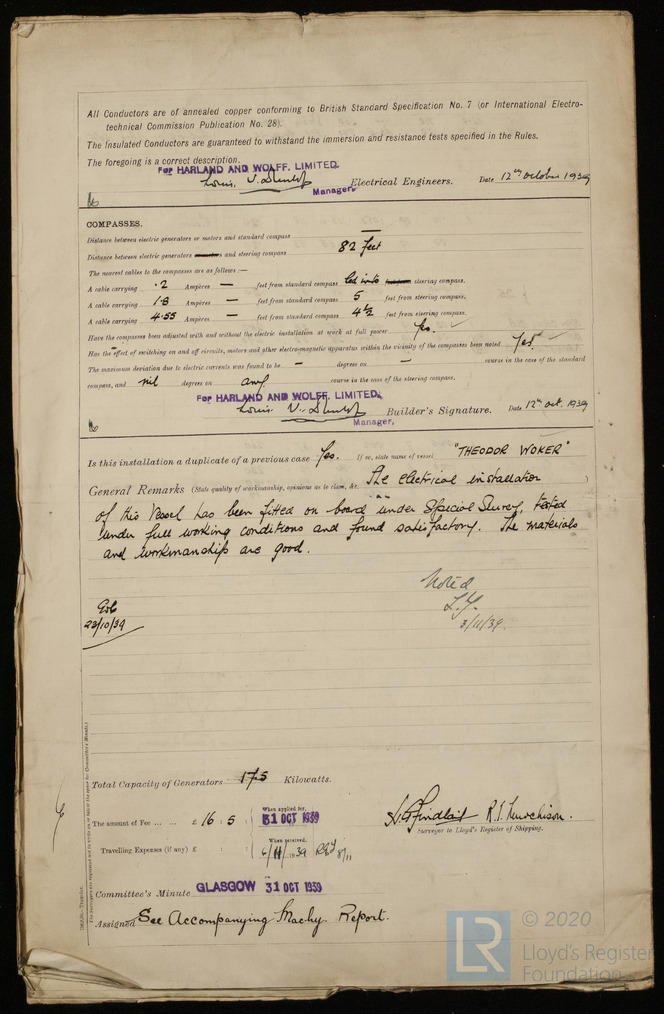 All Conductors are of annealed copper conforming to British Standard Specification No. 7 (or International Electro-
technical Commission Publication No. 28).
The Insulated Conductors are guaranteed to withstand the immersion and resistance tests specified in the Rules.
The foregoing is a correct description.
For HARLAND AND WOLFF. LIMITED.
Manager. Electrical Engineers. Date 12th October 1939
COMPASSES.
Distance between electric generators or motors and standard compass —
Distance between electric generators or motors and steering compass 82 feet
The nearest cables to the compasses are as follows:—
A cable carrying .2 Ampères — feet from standard compass led into steering compass.
A cable carrying 1.8 Ampères — feet from standard compass 5 feet from steering compass.
A cable carrying 4.55 Ampères — feet from standard compass 4½ feet from steering compass.
Have the compasses been adjusted with and without the electric installation at work at full power Yes.
Has the effect of switching on and off circuits, motors and other electro-magnetic apparatus within the vicinity of the compasses been noted Yes.
The maximum deviation due to electric currents was found to be — degrees on — course in the case of the standard
compass, and nil degrees on any course in the case of the steering compass.
For HARLAND AND WOLFF. LIMITED.
Builder's Signature. Date 12th Oct. 1939
Manager.
Is this installation a duplicate of a previous case Yes. If so, state name of vessel "THEODOR WOKER"
General Remarks (State quality of workmanship, opinions as to class, &c. The electrical installation
of this Vessel has been fitted on board under Special Survey, tested
under full working conditions and found satisfactory. The materials
and workmanship are good.
Noted
23/10/39
3/11/39.
Total Capacity of Generators 17.5 Kilowatts.
The amount of Fee ... ... £ 16 : 5 : When applied for, 31 OCT 1939
Travelling Expenses (if any) £ : : When received, 1939 8/11
R. J. Murchison.
Surveyor to Lloyd's Register of Shipping.
Committee's Minute GLASGOW 31 OCT 1939
Assigned See Accompanying Machy. Report.
LR © 2020
Lloyd's Register
Foundation